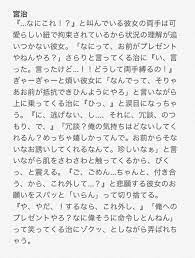 宮治
『…なにこれ！？』と叫んでいる彼女の両手は可
愛らしい紙で拘束されているから状況の理解が追
いつかない彼女。「なにって、お前がプレゼント
やねんやろ？」さらりと言ってくる治に『い、言
った。言ったけど…！！どうして両手縛るの！』
ぎゃーぎゃーと煩い彼女に「なんでって、そりゃ
あお前が抵抗できんようにやろ」と言いながら
上に乗ってくる治に『ひっ、』と涙目になっちゃ
う。『に、逃げない、し…、それに、冗談、のつ
もり、で、』「冗談？俺の気持ちはどないしてく
れるん？めっちゃ嬉しかってん。お前からそない
なお誘いしてくれるなんて。珍しいなぁ」と言
いながら肌をさわさわと触ってくるから、びく
っ、と震える。『ご、ごめん…ちゃんと、付き合
う、から、これ外して…？』と悲願する彼女のお
願いをスパッと「いらん」って切り捨てる。
『や、やだ、！するなら、これ外し、』「俺への
プレゼントやろ？なに偉そうに命令しとんねん」
って笑ってくる治にゾクッ、としながら弄ばれち
ゃう。